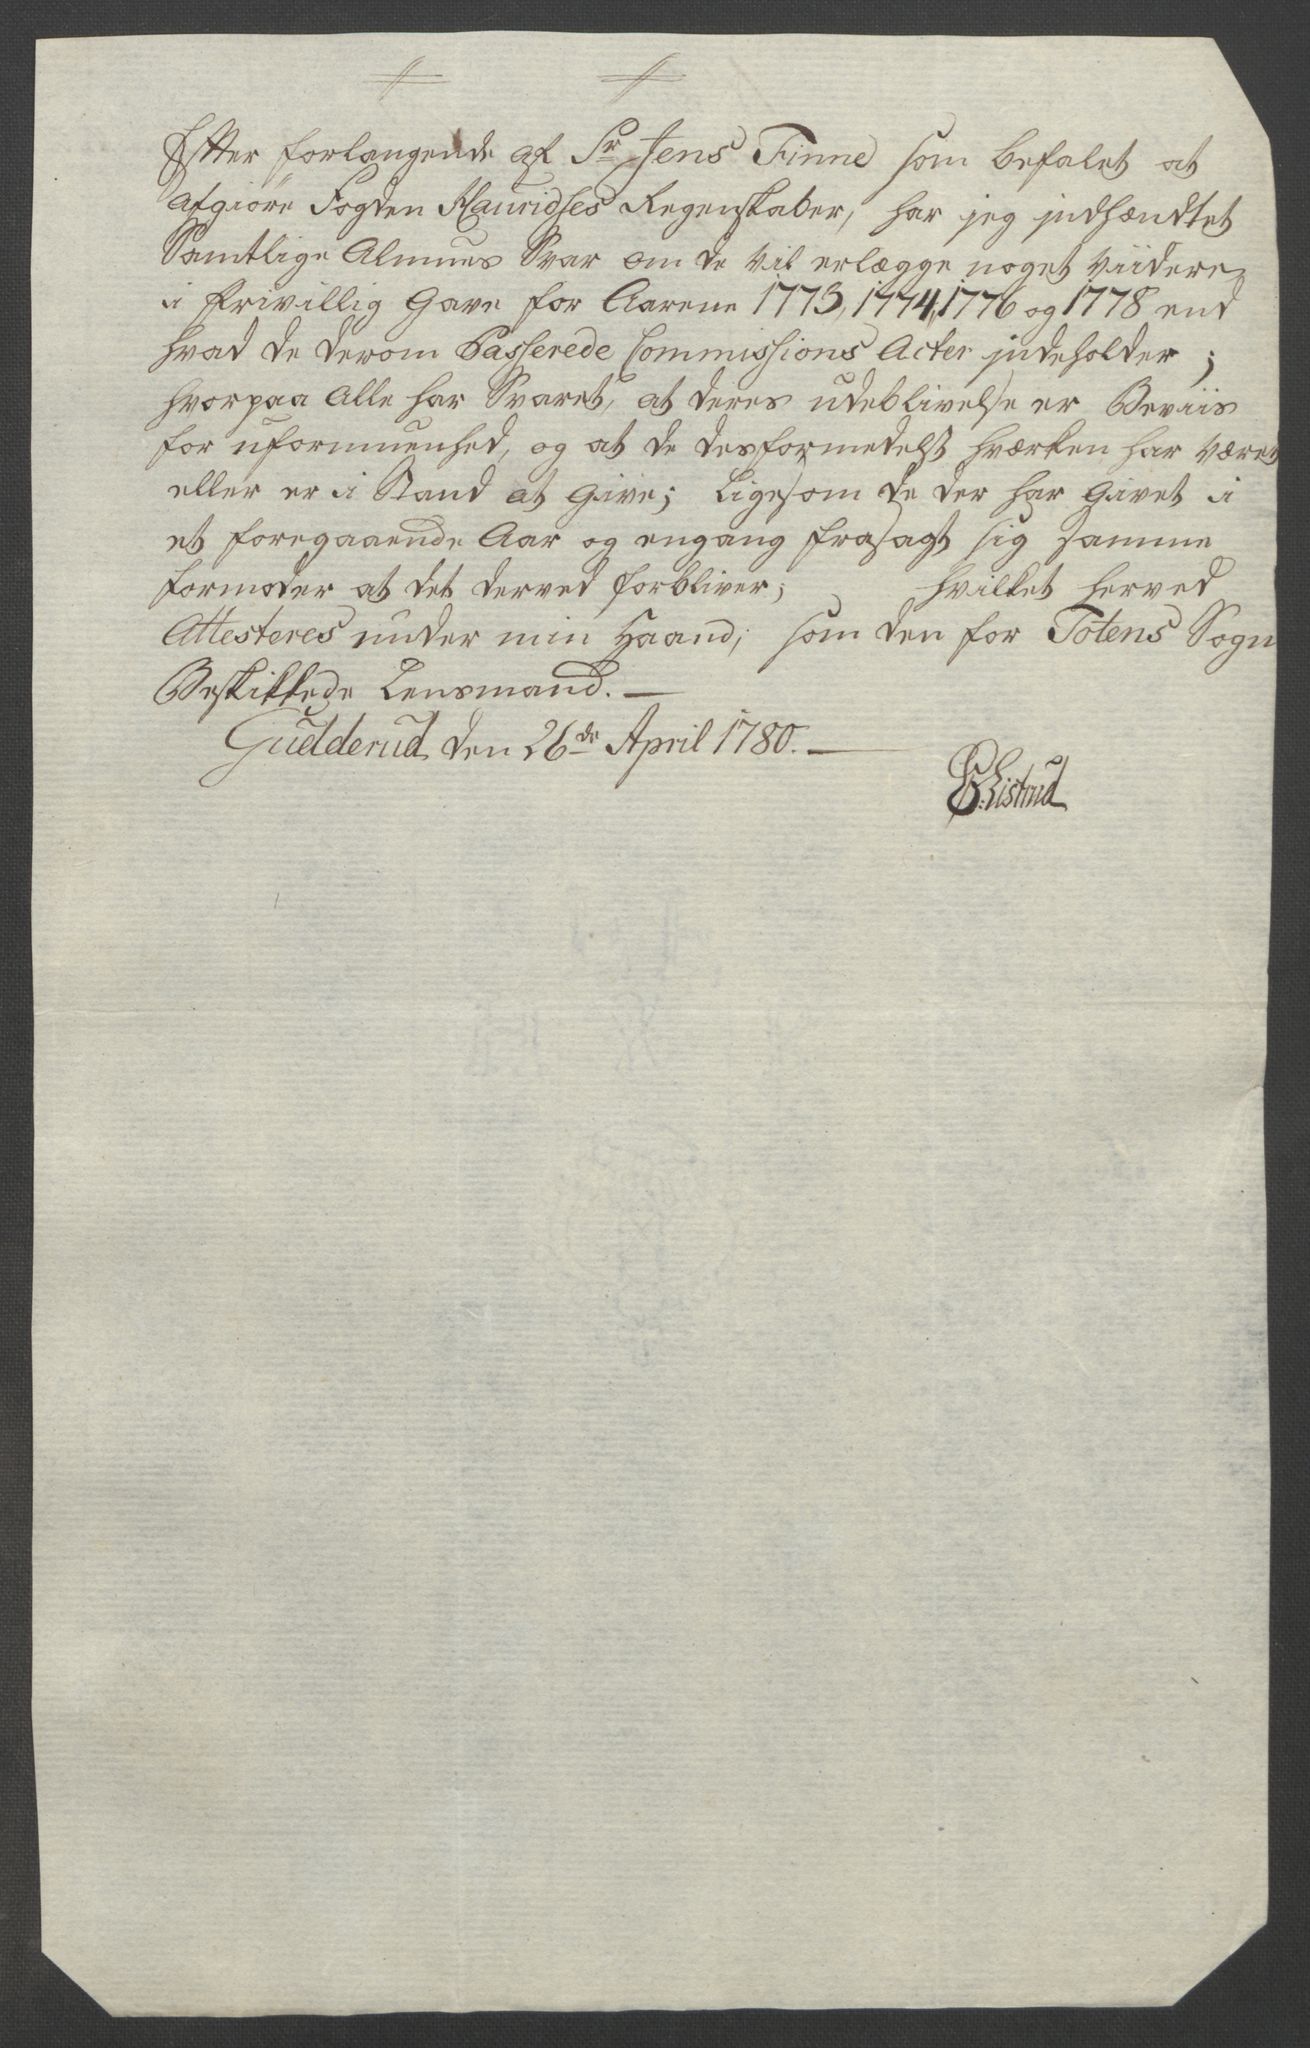 Efter forlangende af Sr Jens Finne som befalet at
afgiöre Fogden Hauridses Regenskaber, har jeg indhændtet
Samtlige Almues Svar om de vil erlægge noget viidere
i frivillig Gave for Aarene 1773, 1774, 1776 og 1778 end
hvad de derom Passerede Commissions Acter indeholder;
hvorpaa Alle har Svaret, at deres udeblivelse er Beviis
for uformuenhed, og at de desformedelst hværken har været
eller er i Stand at Give; Ligesom de der har Givet i
et foregaaende Aar og engang frasagt sig samme
formoder at det derved forbliver; hvilket herved
Attesteres under min Haand; som den for Totens Sogn
Beskikkede Lensmand. —
Gudderud den 26de April 1780. —
Ristrud